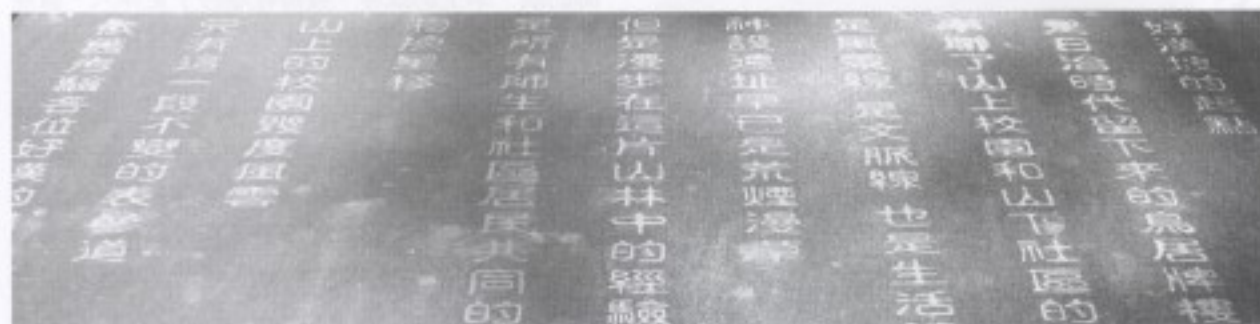 好漢坡的起點
是日治時代留下來的鳥居牌樓
牽聯了山上校園和山下社區的
是風景線 是文脈線 也是生活
神設遺址早已是荒煙漫草
但是漫步在這片山林中的經驗
是所有師生和社區居民共同的
物換星移
山上的校園幾度風雲
只有這一段不變的表參道
各位好漢的